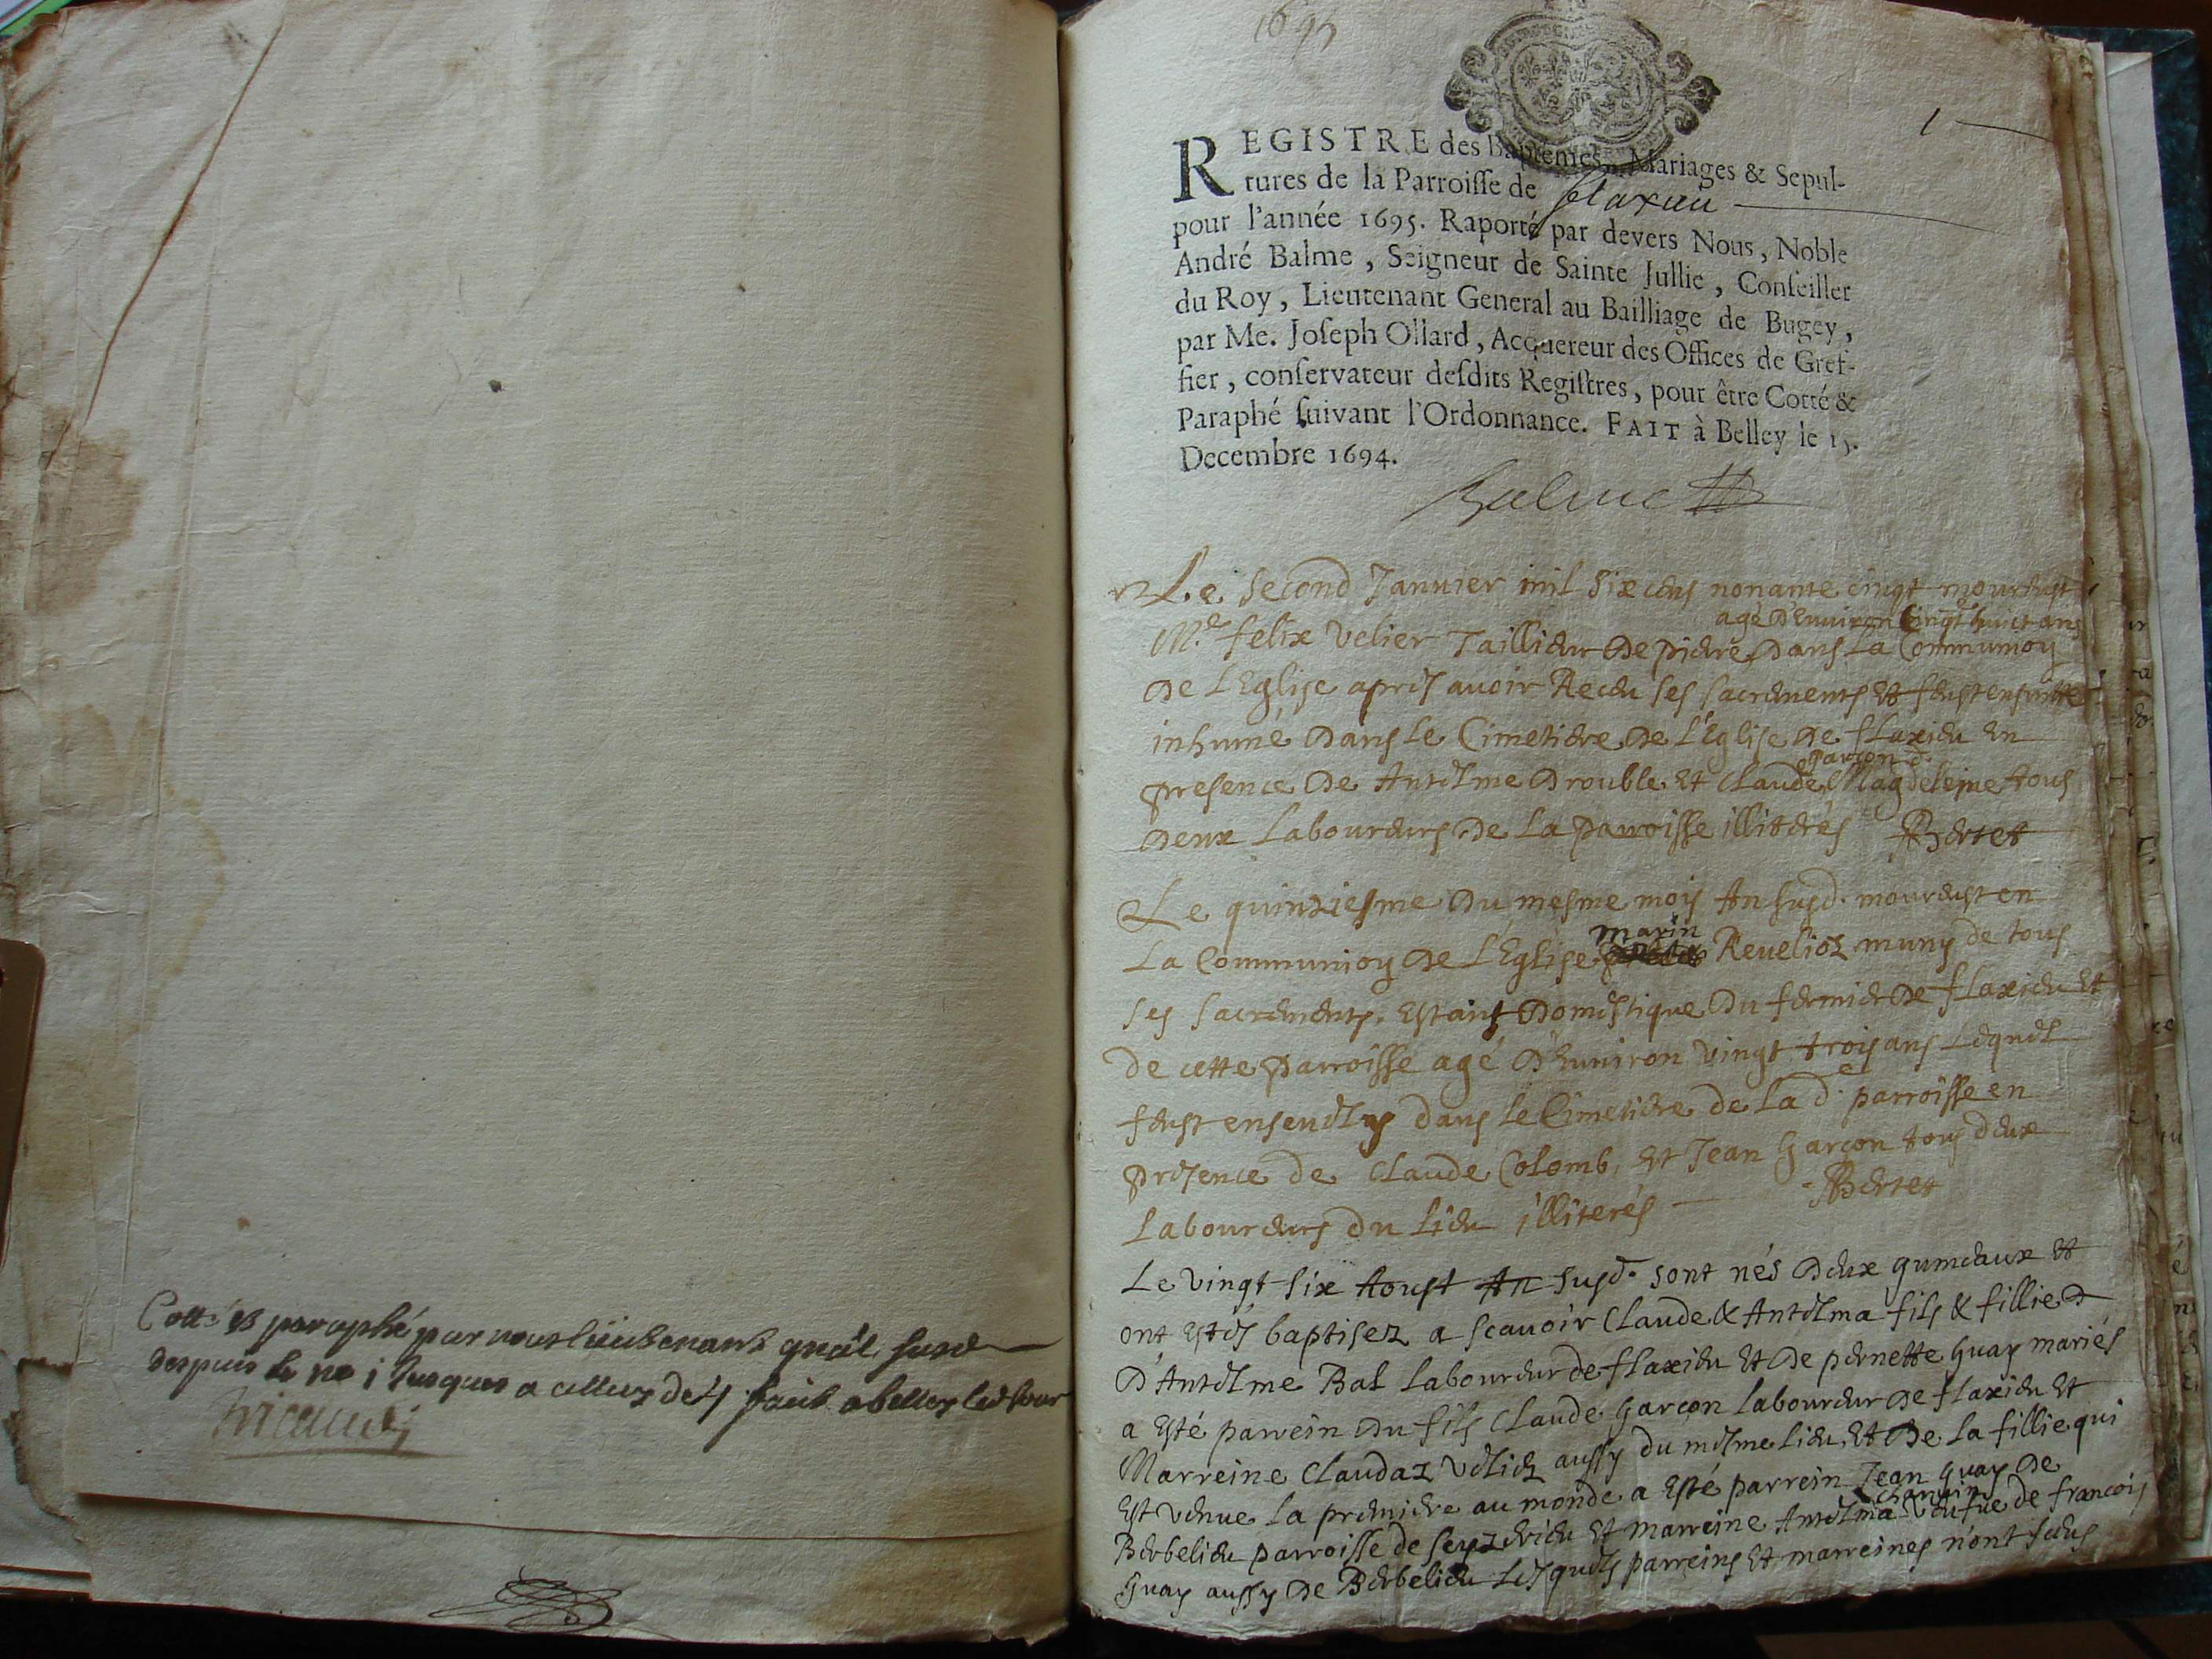 Cotté et paraphé par nous lieutenant gnâl susd
despuis le no 1 jusques a celluy de 4 fait a belley led jour
1695
1
REGISTRE des Baptêmes, Mariages & Sepul-
tures de la Parroisse de flaxieu
pour l'année 1695. Raporté par devers Nous, Noble
André Balme, Seigneur de Sainte Jullie, Conseiller
du Roy, Lieutenant General au Bailliage de Bugey,
par Me. Joseph Ollard, Acquereur des Offices de Gref-
fier, conservateur desdits Registres, pour être Cotté &
Paraphé suivant l'Ordonnance. FAIT à Belley le 15.
Decembre 1694.
Balme
Le second Januier mil six cens nonante cinqt mourust
agé d'enuiron cinqt huict ans
M.e felix Velier Taillieur de pierre dans la Communion
de l'Eglise apres auoir Receu ses sacrements et feust ensuitte
inhumé dans le Cimetiere de l'Eglise de flaxieu en
garcon d.
presence de Antelme Drouble et Claude Magdeleine tous
deux Laboureurs de La parroisse illiterés Bertet
Le quinziesme du mesme mois An susd. mourust en
marin
La Communion de L'Eglise Reuelioz muny de tous
ses sacrements, estant Domestique du fermier de flaxieu et
de cette parroisse agé d'Enuiron vingt trois ans Lequel
feust enseuely dans le Cimetiere de la d.e parroisse en
presence de Claude Colomb, et Jean Garcon tous deux
Laboureurs du Lieu illiterés Bertet
Le vingt six Aoust An susd. sont nés deux gumeaux et
ont estés baptisez a scauoir Claude & Antelma fils & fillie
D'Antelme Bal laboureur de flaxieu et de pernette Guay mariés
a esté parrein du fils Claude Garcon laboureur de flaxieu et
Marreine Claudaz Veliez aussy du mesme lieu, et de la fillie qui
est venue la premiere au monde a esté parrein Jean Guay de
Berbelieu parroisse de seyzerieu et marreine Antelma veufue de francois
Guay aussy de Berbelieu Lesquels parreins et marreines n'ont sceus